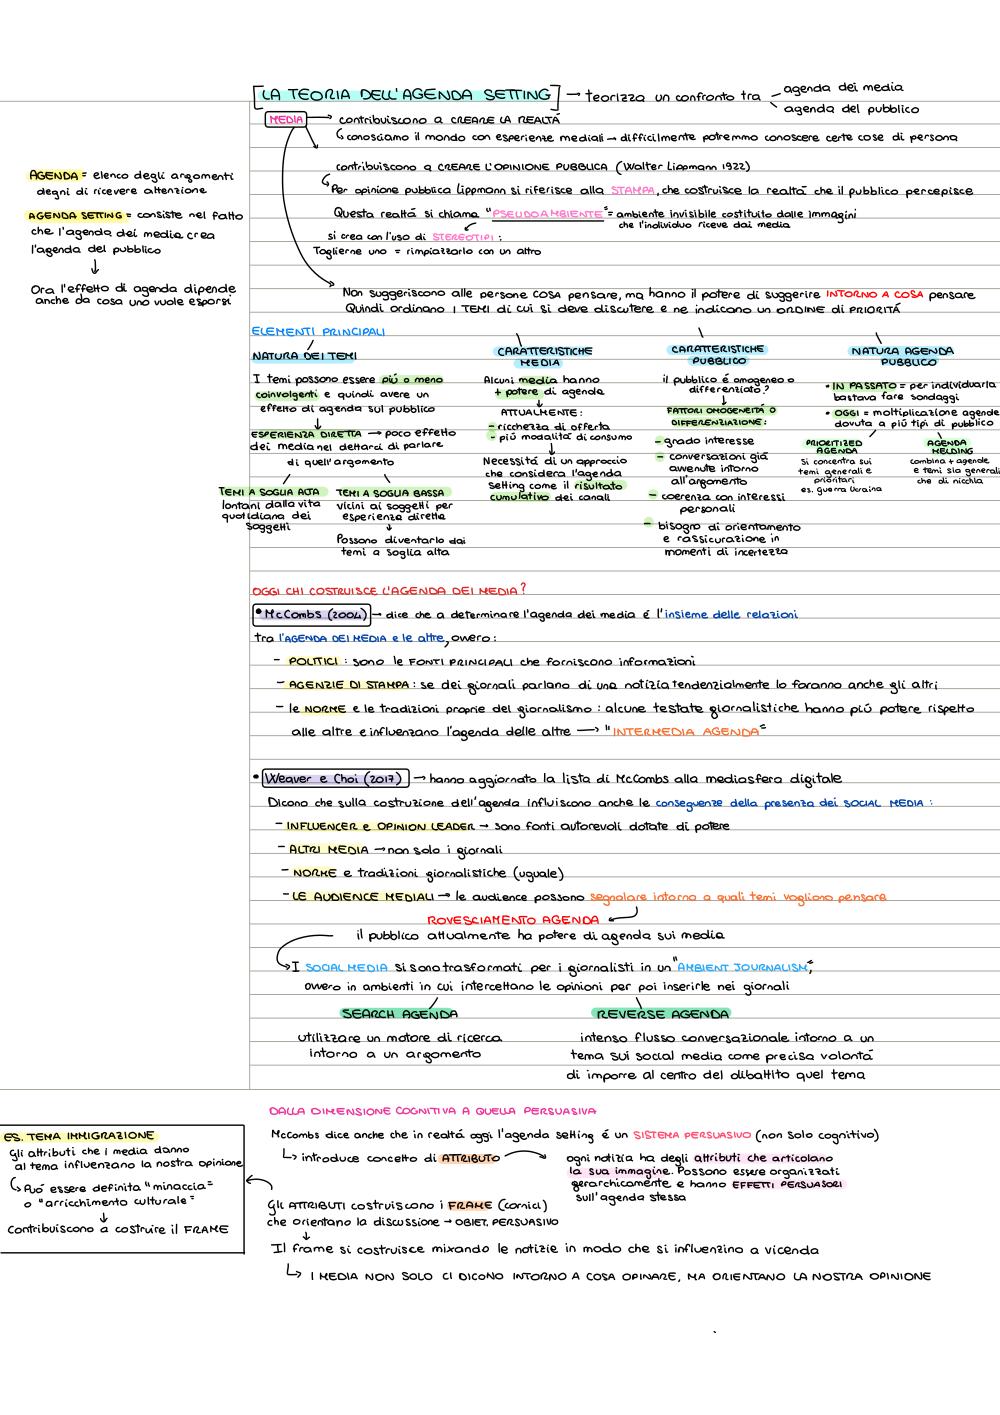 LA TEORIA DELL'AGENDA SETTING → teorizza un confronto tra
agenda dei media
agenda del pubblico
MEDIA → contribuiscono a CREARE LA REALTÁ
conosciamo il mondo con esperienze mediali → difficilmente potremmo conoscere certe cose di persona
contribuiscono a CREARE L'OPINIONE PUBBLICA (Walter Lippmann 1922)
Per opinione pubblica Lippmann si riferisce alla STAMPA, che costruisce la realtá che il pubblico percepisce
Questa realtá si chiama "PSEUDOAMBIENTE" = ambiente invisibile costituito dalle immagini
che l'individuo riceve dai media
si crea con l'uso di STEREOTIPI:
Toglierne uno = rimpiazzarlo con un altro
Non suggeriscono alle persone COSA pensare, ma hanno il potere di suggerire INTORNO A COSA pensare
Quindi ordinano I TEMI di cui si deve discutere e ne indicano un ORDINE di PRIORITÁ
AGENDA = elenco degli argomenti
degni di ricevere attenzione
AGENDA SETTING = consiste nel fatto
che l'agenda dei media crea
l'agenda del pubblico
↓
Ora l'effetto di agenda dipende
anche da cosa uno vuole esporsi
ELEMENTI PRINCIPALI
NATURA DEI TEMI
I temi possono essere piú o meno
coinvolgenti e quindi avere un
effetto di agenda sul pubblico
↓
ESPERIENZA DIRETTA → poco effetto
dei media nel dettarci di parlare
di quell'argomento
TEMI A SOGLIA ALTA
lontani dalla vita
quotidiana dei
soggetti
TEMI A SOGLIA BASSA
vicini ai soggetti per
esperienza diretta
↓
Possono diventarlo dai
temi a soglia alta
CARATTERISTICHE
MEDIA
Alcuni media hanno
+ potere di agenda
↓
ATTUALMENTE:
- ricchezza di offerta
- piú modalitá di consumo
↓
Necessitá di un approccio
che considera l'agenda
setting come il risultato
cumulativo dei canali
CARATTERISTICHE
PUBBLICO
il pubblico é omogeneo o
differenziato?
↓
FATTORI OMOGENEITÁ O
DIFFERENZIAZIONE:
- grado interesse
- conversazioni giá
avvenute intorno
all'argomento
- coerenza con interessi
personali
- bisogno di orientamento
e rassicurazione in
momenti di incertezza
NATURA AGENDA
PUBBLICO
• IN PASSATO = per individuarla
bastava fare sondaggi
• OGGI = moltiplicazione agende
dovuta a piú tipi di pubblico
PRIORITIZED
AGENDA
Si concentra sui
temi generali e
prioritari
es. guerra Ucraina
AGENDA
MELDING
combina + agende
e temi sia generali
che di nicchia
OGGI CHI COSTRUISCE L'AGENDA DEI MEDIA?
• McCombs (2004) → dice che a determinare l'agenda dei media é l'insieme delle relazioni
tra l'AGENDA DEI MEDIA e le altre, ovvero:
- POLITICI : sono le FONTI PRINCIPALI che forniscono informazioni
- AGENZIE DI STAMPA : se dei giornali parlano di una notizia tendenzialmente lo faranno anche gli altri
- le NORME e le tradizioni proprie del giornalismo : alcune testate giornalistiche hanno piú potere rispetto
alle altre e influenzano l'agenda delle altre → "INTERMEDIA AGENDA"
• Weaver e Choi (2017) → hanno aggiornato la lista di McCombs alla mediasfera digitale
Dicono che sulla costruzione dell'agenda influiscono anche le conseguenze della presenza dei SOCIAL MEDIA :
- INFLUENCER e OPINION LEADER → sono fonti autorevoli dotate di potere
- ALTRI MEDIA → non solo i giornali
- NORME e tradizioni giornalistiche (uguale)
- LE AUDIENCE MEDIALI → le audience possono segnalare intorno a quali temi vogliono pensare
ROVESCIAMENTO AGENDA
il pubblico attualmente ha potere di agenda sui media
I SOCIAL MEDIA si sono trasformati per i giornalisti in un "AMBIENT JOURNALISM",
ovvero in ambienti in cui intercettano le opinioni per poi inserirle nei giornali
SEARCH AGENDA
utilizzare un motore di ricerca
intorno a un argomento
REVERSE AGENDA
intenso flusso conversazionale intorno a un
tema sui social media come precisa volontá
di imporre al centro del dibattito quel tema
DALLA DIMENSIONE COGNITIVA A QUELLA PERSUASIVA
McCombs dice anche che in realtá oggi l'agenda setting é un SISTEMA PERSUASIVO (non solo cognitivo)
introduce concetto di ATTRIBUTO →
ogni notizia ha degli attributi che articolano
la sua immagine. Possono essere organizzati
gerarchicamente e hanno EFFETTI PERSUASORI
sull'agenda stessa
Gli ATTRIBUTI costruiscono i FRAME (cornici)
che orientano la discussione → OBIET. PERSUASIVO
↓
Il frame si costruisce mixando le notizie in modo che si influenzino a vicenda
I MEDIA NON SOLO CI DICONO INTORNO A COSA OPINARE, MA ORIENTANO LA NOSTRA OPINIONE
ES. TEMA IMMIGRAZIONE
gli attributi che i media danno
al tema influenzano la nostra opinione
Puó essere definita "minaccia"
o "arricchimento culturale"
↓
Contribuiscono a costruire il FRAME